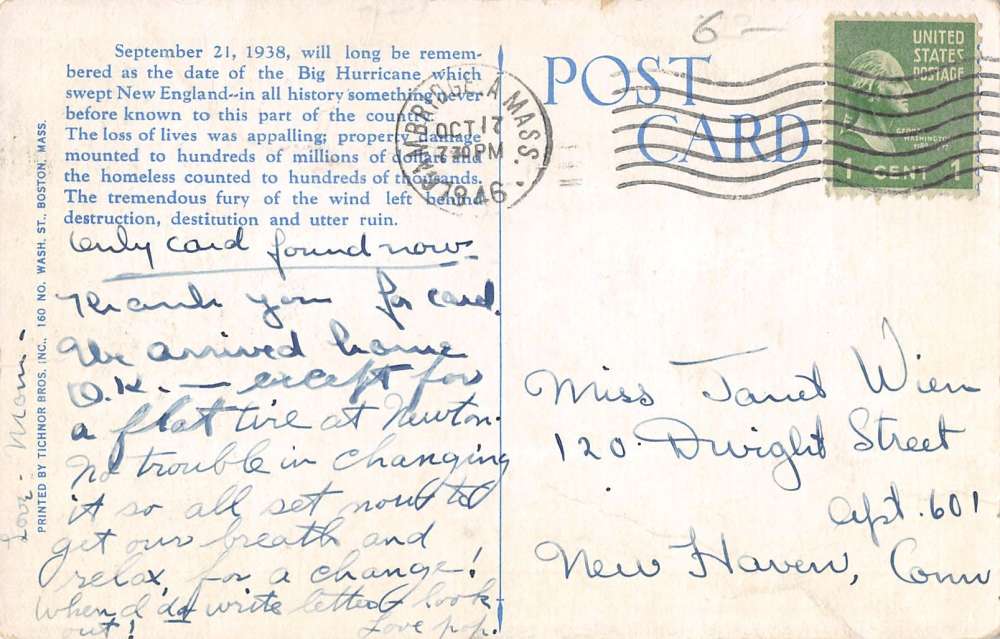 September 21, 1938, will long be remem-
bered as the date of the Big Hurricane which
swept New England--in all history something never
before known to this part of the country.
The loss of lives was appalling; property damage
mounted to hundreds of millions of dollars and
the homeless counted to hundreds of thousands.
The tremendous fury of the wind left behind
destruction, destitution and utter ruin.
Only card found now-
Thank you for card.
We arrived home
O.K. — except for
a flat tire at Newton.
No trouble in changing
it so all set now to
get our breath and
relax, for a change!
When I do write letter - look
out!
Love pop.
Love - Mom -
PRINTED BY TICHNOR BROS. INC., 160 NO. WASH. ST., BOSTON, MASS.
CAMBRIDGE A MASS.
OCT 17
7 30 PM
1946
POST
CARD
6 —
UNITED
STATES
POSTAGE
GEORGE
WASHINGTON
1 CENT 1
Miss Janet Wien
120 Dwight Street
Apt. 601
New Haven, Conn